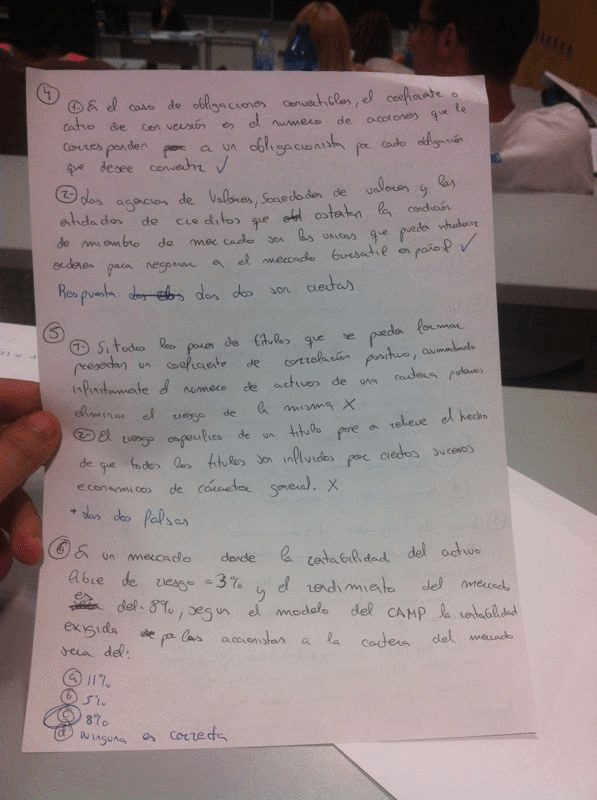 4
① En el caso de obligaciones convertibles, el coeficiente o
ratio de conversión es el numero de acciones que le
corresponden a un obligacionista por cada obligación
que desee convertir ✓
2- Las agencias de Valores, Sociedades de valores y las
entidades de creditos que ostentan la condición
de miembro de mercado son las unicas que pueda introducir
ordenes para negociar en el mercado bursatil español ✓
Respuesta: las dos son ciertas
5
1- Si todos los pares de títulos que se pueda formar
presentan un coeficiente de correlación positivo, aumentando
infinitamente el numero de activos de una cartera podemos
eliminar el riesgo de la misma X
2- El riesgo especifico de un titulo pone a relieve el hecho
de que todos los títulos son influidos por ciertos sucesos
economicos de cáracter general. X
+ Las dos falsas
6 En un mercado donde la rentabilidad del activo
libre de riesgo = 3% y el rendimiento del mercado
es del: 8%, segun el modelo del CAMP la rentabilidad
exigida por los accionistas a la cartera del mercado
sera del:
a 11%
b 5%
c 8%
d ninguna es correcta